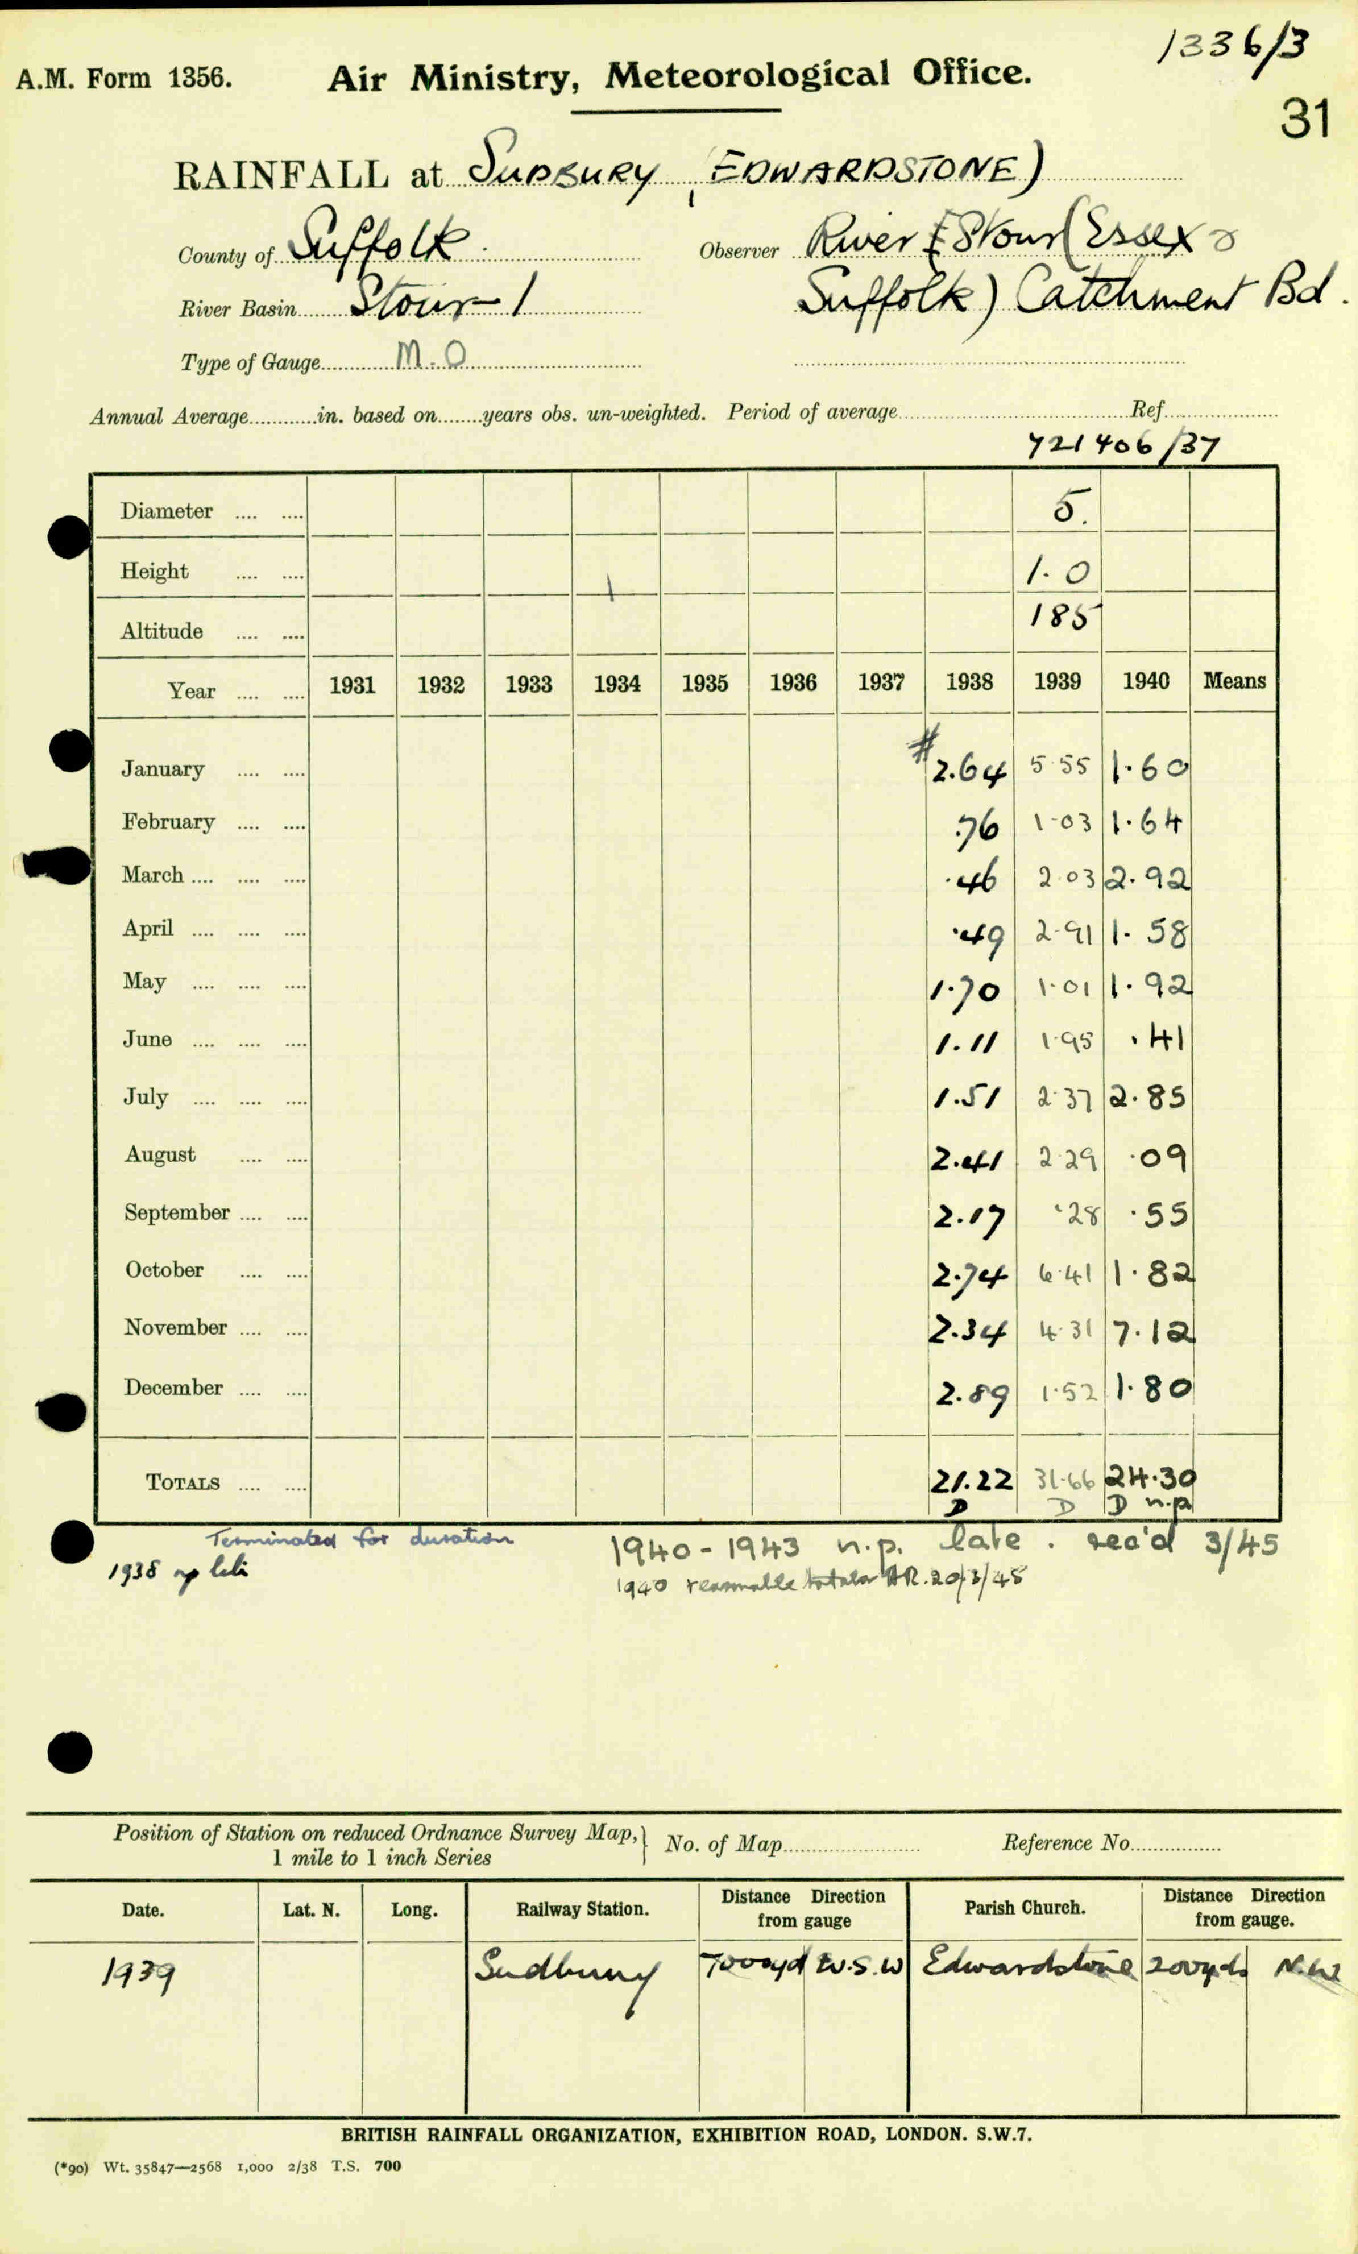 1336/3
A.M. Form 1356. Air Ministry, Meteorological Office.
31
RAINFALL at SUDBURY (EDWARDSTONE)
County of Suffolk. Observer River Stour (Essex &
River Basin Stour 1 Suffolk) Catchment Bd.
Type of Gauge M.O
Annual Average in. based on years obs. un-weighted. Period of average Ref.
721406/37
Diameter .... .... 5.
Height .... .... 1.0
Altitude .... .... 185
Year .... .... 1931 1932 1933 1934 1935 1936 1937 1938 1939 1940 Means
#
January .... .... 2.64 5.55 1.60
February .... .... .76 1.03 1.64
March .... .... .... .46 2.03 2.92
April .... .... .... .49 2.91 1.58
May .... .... .... 1.70 1.01 1.92
June .... .... .... 1.11 1.95 .41
July .... .... .... 1.51 2.37 2.85
August .... .... 2.41 2.29 .09
September .... .... 2.17 .28 .55
October .... .... 2.74 6.41 1.82
November .... .... 2.34 4.31 7.12
December .... .... 2.89 1.52 1.80
TOTALS .... .... 21.22 31.66 24.30
D D D n.p
Terminated for duration 1940-1943 n.p. late. rec'd 3/45
1938 1940 reasonable totals 20/3/45
Position of Station on reduced Ordnance Survey Map, No. of Map Reference No.
1 mile to 1 inch Series
Date. Lat. N. Long. Railway Station. Distance Direction from gauge Parish Church. Distance Direction from gauge.
1939 Sudbury 7000yd W.S.W Edwardstone 200yds N.W
BRITISH RAINFALL ORGANIZATION, EXHIBITION ROAD, LONDON. S.W.7.
(*90) Wt. 35847—2568 1,000 2/38 T.S. 700